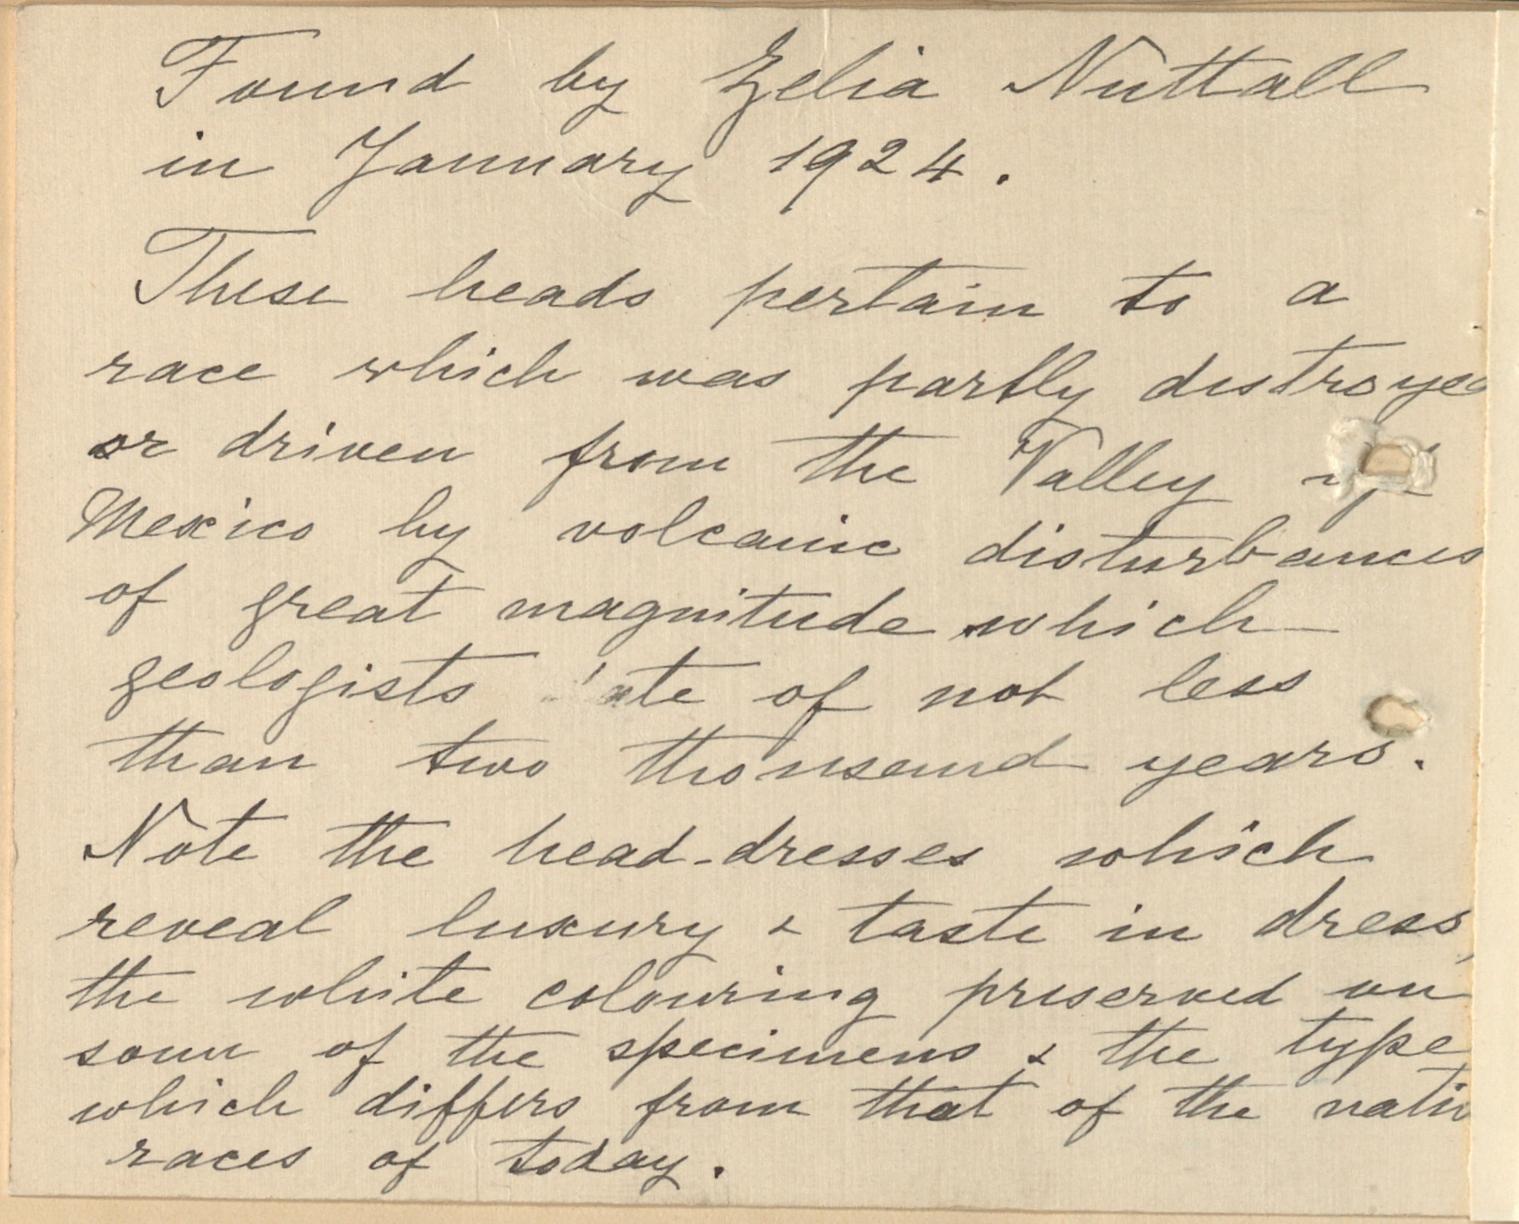 Found by Zelia Nuttall
in January 1924.
These heads pertain to a
race which was partly distroyed
or driven from the Valley of
Mexico by volcanic disturbances
of great magnitude which
geologists of not less
than two thousand years.
Note the head-dresses which
reveal luxury & taste in dress,
the white colouring preserved on
some of the specimens & the type
which differs from that of the nativ
races of today.